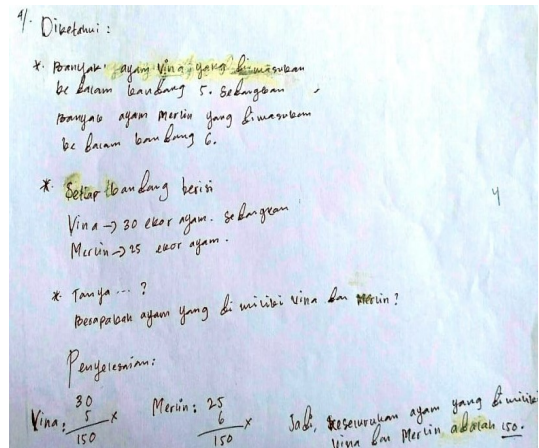 4/. Diketahui :
*. Banyak ayam Vina yang dimasukan
ke dalam kandang 5. Sedangkan
Banyak ayam Merlin yang dimasukan
ke dalam kandang 6.
*. Setiap kandang berisi
Vina → 30 ekor ayam. Sedangkan
Merlin → 25 ekor ayam.
4
*. Tanya ... ?
Berapakah ayam yang di miliki Vina dan Merlin?
Penyelesaian:
Vina: 30 Merlin: 25
5 x 6 x
150 150
Jadi, keseluruhan ayam yang dimiliki
Vina dan Merlin adalah 150.